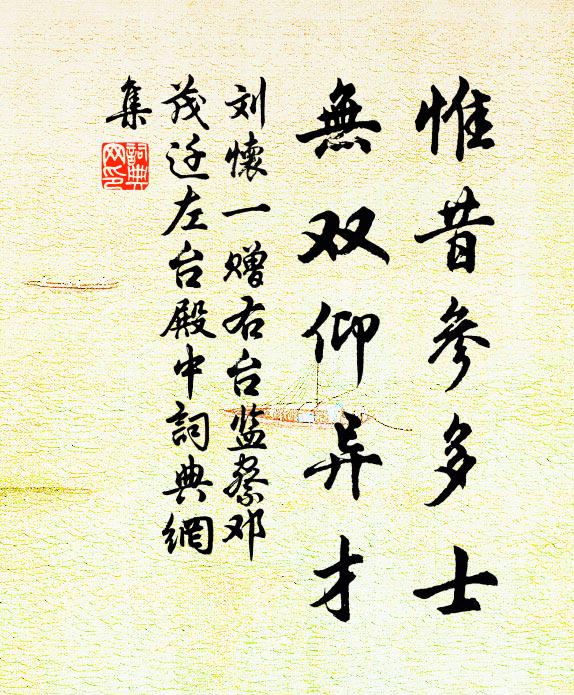 惟昔參多士
無双仰异才
刘懷一赠右台监察邓
茂迁左台殿中詞典網
集
詞典网印